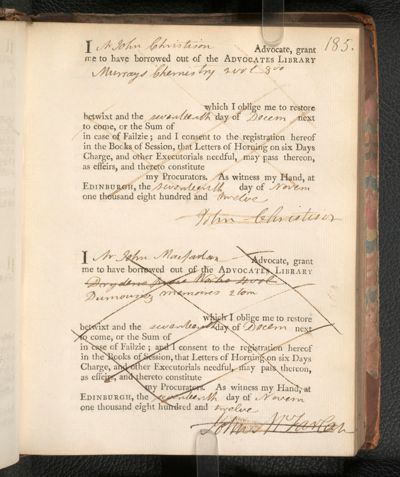 185.
I Mr John Christison Advocate, grant
me to have borrowed out of the ADVOCATES LIBRARY
Murrays Chemestry 2 vol 8vo
which I oblige me to restore
betwixt and the seventeenth day of Decem next
to come, or the Sum of
in case of Failzie; and I consent to the registration hereof
in the Books of Session, that Letters of Horning on six Days
Charge, and other Executorials needful, may pass thereon,
as effeirs, and thereto constitute
my Procurators. As witness my Hand, at
EDINBURGH, the seventeenth day of Novem
one thousand eight hundred and twelve
John Christison
I Mr John Macfarlan Advocate, grant
me to have borrowed out of the ADVOCATES LIBRARY
Drydens Works
Dumouriez memoires 2 tom
which I oblige me to restore
betwixt and the seventeenth day of Decem next
to come, or the Sum of
in case of Failzie; and I consent to the registration hereof
in the Books of Session, that Letters of Horning on six Days
Charge, and other Executorials needful, may pass thereon,
as effeirs, and thereto constitute
my Procurators. As witness my Hand, at
EDINBURGH, the seventeenth day of Novem
one thousand eight hundred and twelve
John McFarlan